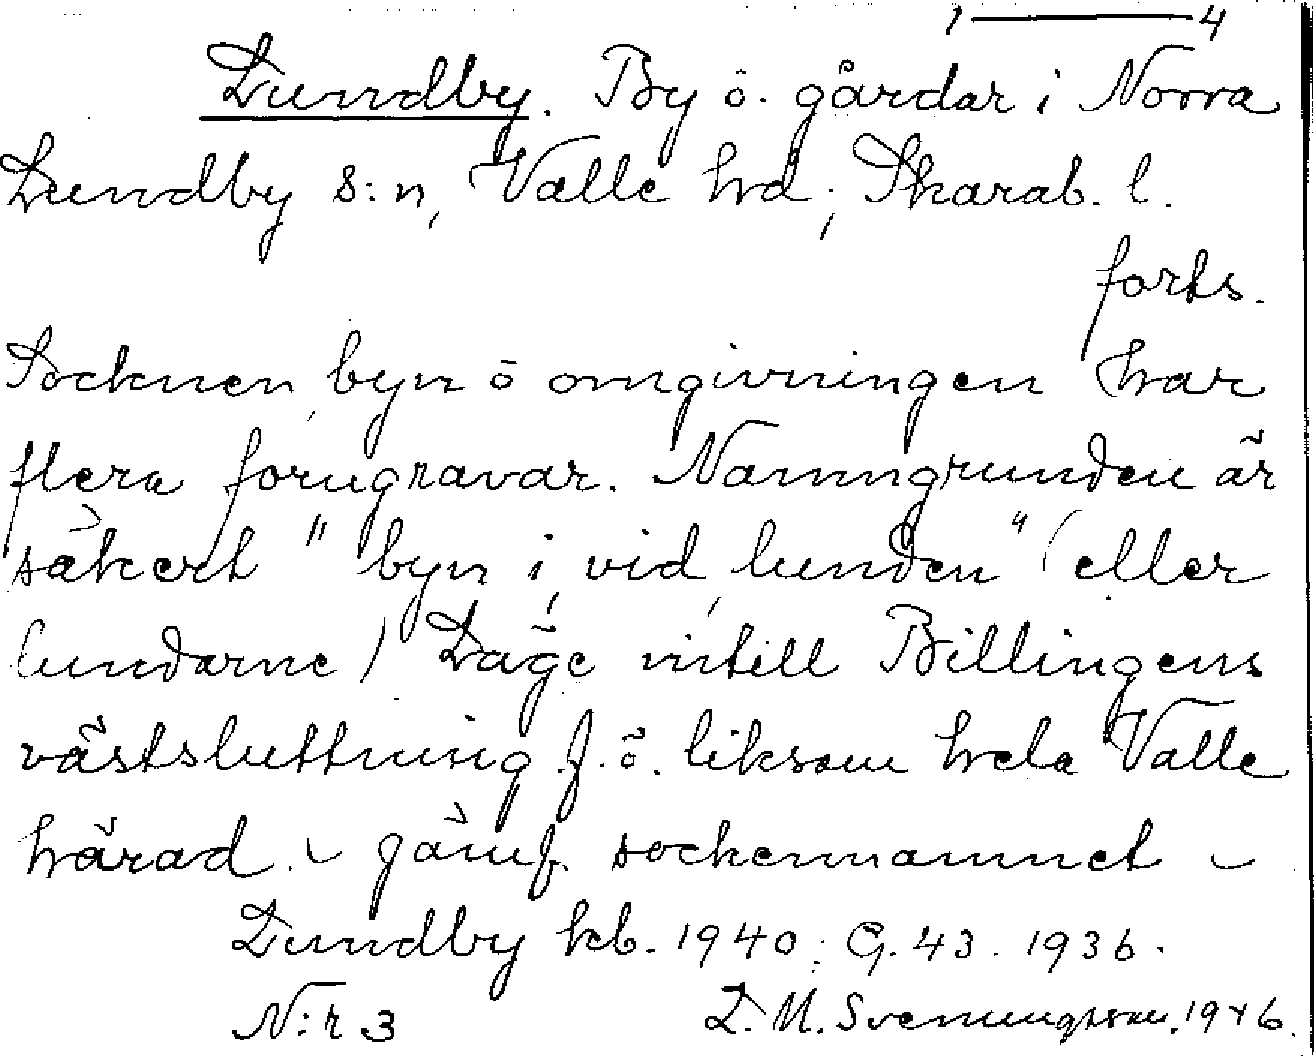 1 — 4
Lundby. By o. gårdar i Norra
Lundby s:n, Valle hd; Skarab. l.
forts.
Socknen, byn o omgivningen har
flera forngravar. Namngrunden är
säkert "byn i, vid, lunden" (eller
lundarne) Läge intill Billingens
västsluttning f. ö. liksom hela Valle
härad. - jämf. sockennamnet -
Lundby kb. 1940: G. 43. 1936.
N:r 3 L. M. Svenungsson. 1946.